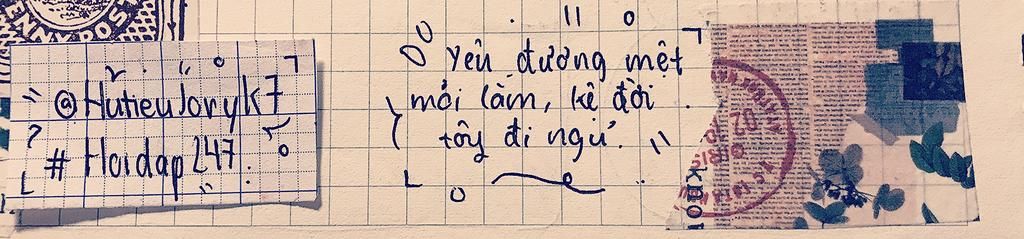 ENNY POST
@HutieuJoryk7
#Hoidap247
Yêu đương mệt
mỏi lắm, kệ đời
tôy đi ngủ.